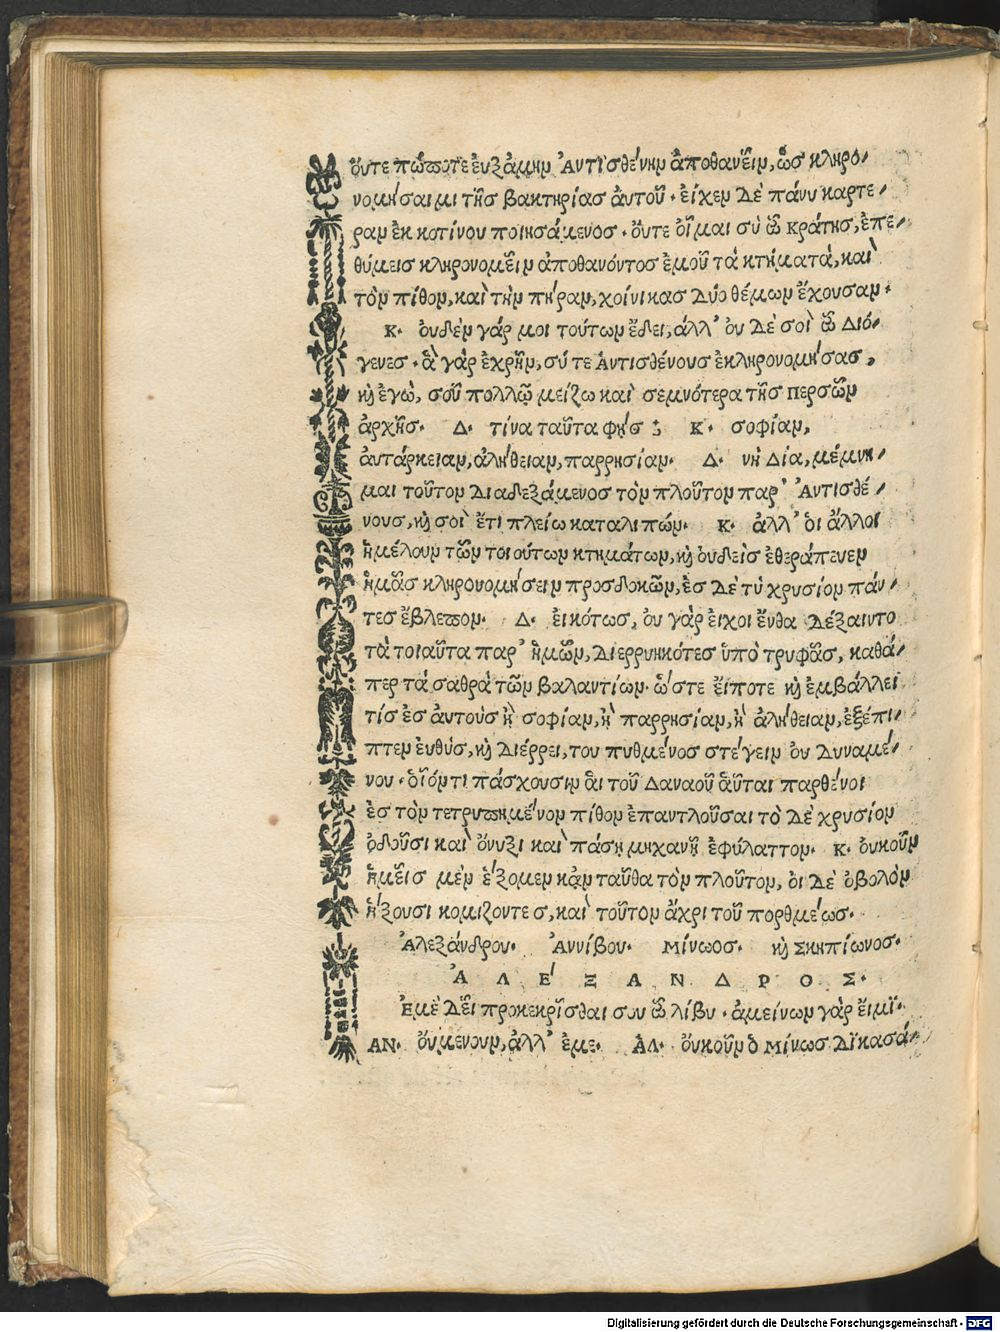 ὄυτε πώποτε ἐυξάμην Ἀντισθένην ἀποθανεῖν, ὡσ κληρο-
νομήσαιμι τῆσ βακτηρίασ ἀυτοῦ· ἐίχεν δὲ πάνυ καρτε-
ραν ἐκ κοτίνου ποιησάμενοσ· ὄυτε οἶμαι σὺ ὦ κράτησ, ἐπε-
θύμεισ κληρονομεῖν ἀποθανόντοσ ἐμοῦ τὰ κτήματά, καὶ
τὸν πίθον, καὶ τὴν πήραν, χοίνικασ δύο θέμων ἔχουσαν·
Κ· ὀυδὲν γάρ μοι τούτων ἔδει, ἀλλ' ὀυ δὲ σοὶ ὦ Διό-
γενεσ· ἃ γὰρ ἐχρῆν, σύ τε Ἀντισθένουσ ἐκληρονομήσασ,
κὴ ἐγὼ, σοῦ πολλῷ μείζω καὶ σεμνότερα τῆσ Περσῶν
ἀρχῆσ· Δ· τίνα ταῦτα φῄσ ; Κ· σοφίαν,
ἀυτάρκειαν, ἀλήθειαν, παρρησίαν· Δ· νὴ Δία, μέμνη-
μαι τοῦτον διαδεξάμενοσ τὸν πλοῦτον παρ' Ἀντισθέ-
νουσ, κὴ σοὶ ἔτι πλείω καταλιπών· Κ· ἀλλ' ὁι ἄλλοι
ἠμέλουν τῶν τοιούτων κτημάτων, κὴ ὀυδεὶσ ἐθεράπευεν
ἡμᾶσ κληρονομήσειν προσδοκῶν, ἐσ δὲ τὺ χρυσίον πάν-
τεσ ἔβλεπον· Δ· ἐικότωσ, ὀυ γὰρ ἐιχοι ἔνθα δέξαιντο
τὰ τοιαῦτα παρ' ἡμῶν, διερρυηκότεσ ὑπὸ τρυφᾶσ, καθά-
περ τὰ σαθρὰ τῶν βαλαντίων· ὥστε ἔιποτε κὴ ἐμβάλλει
τίσ ἐσ ἀυτοὺσ ἢ σοφίαν, ἢ παρρησίαν, ἢ ἀλήθειαν, ἐξέπι-
πτεν ἐυθύσ, κὴ διέρρει, του πυθμένοσ στέγειν ὀυ δυναμέ-
νου· ὁῖόντι πάσχουσιν ἁι τοῦ Δαναοῦ ἁῦται παρθένοι
ἐσ τὸν τετρυπημένον πίθον ἐπαντλοῦσαι τὸ δὲ χρυσίον
ὀδοῦσι καὶ ὄνυξι καὶ πάσῃ μηχανῇ ἐφύλαττον· Κ· ὀυκοῦν
ἡμεῖσ μὲν ἕξομεν κᾀνταῦθα τὸν πλοῦτον, ὁι δὲ ὀβολὸν
ἥξουσι κομιζοντεσ, καὶ τοῦτον ἄχρι τοῦ πορθμέωσ·
Ἀλεξάνδρου· Ἀννίβου· Μίνωοσ· κὴ Σκηπίωνοσ·
Ἀ Λ Έ Ξ Α Ν Δ Ρ Ο Σ·
Ἐμὲ δεῖ προκεκρῖσθαι σου ὦ λίβυ· ἀμείνων γὰρ ἔιμϊ·
ΑΝ· ὄυμενουν, ἀλλ' ἐμε· ἈΛ· ὄυκοῦν ὁ Μίνωσ δϊκασά-
Digitalisierung gefördert durch die Deutsche Forschungsgemeinschaft - DFG